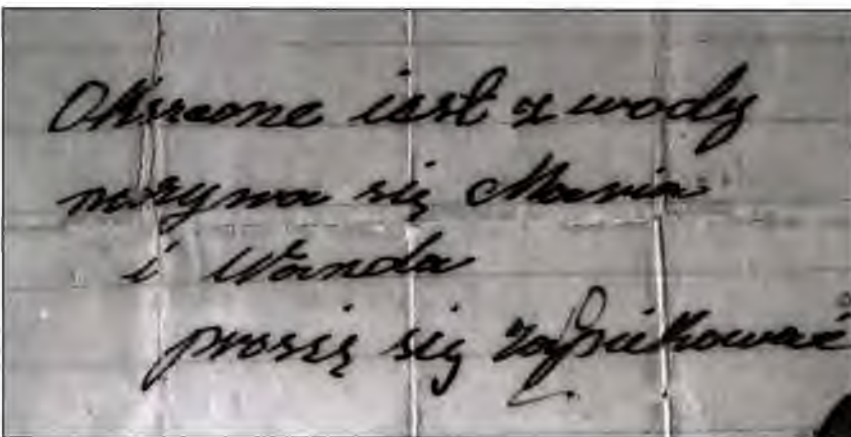 Okszcone iest z wody
nazywa się Maria
i Wanda
proszę się zaopiekować